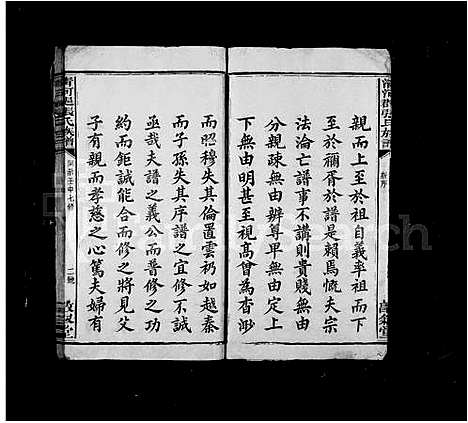 親而上至於祖自義率祖而下
至於禰胥於譜是賴焉慨夫宗
法淪亡譜事不講則貴賤無由
分親疎無由辨尊卑無由定上
下無由明甚至視高曾為杳渺
而昭穆失其倫置雲礽如越秦
而子孫失其序譜之宜修不誠
亟哉夫譜之義公而普修之功
約而鉅誠能合而修之將見父
子有親而孝慈之心篤夫婦有
清河郡張氏族譜
二號
敦叙堂
FamilySearch